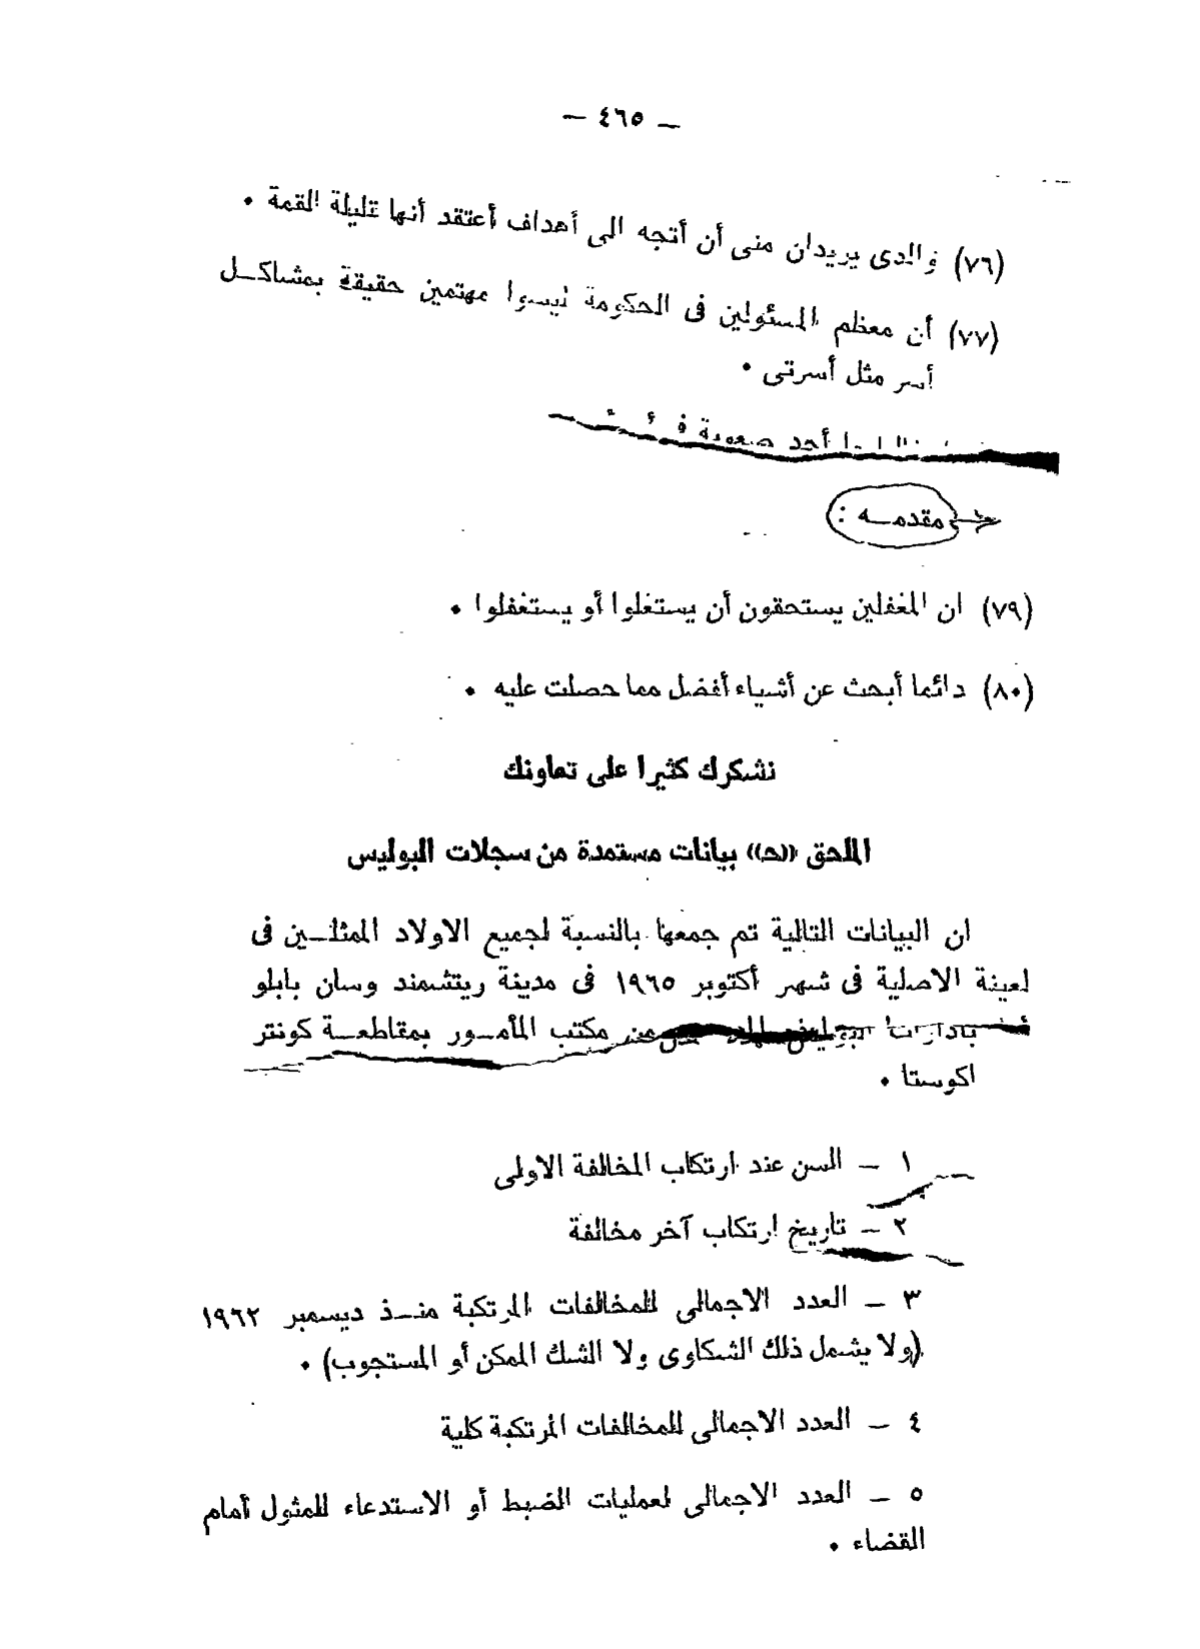 — ٤٦٥ —
(٧٦) والدى يريدان منى أن أتجه الى أهداف أعتقد أنها قليلة القمة .
(٧٧) أن معظم المسئولين فى الحكومة ليسوا مهتمين حقيقة بمشاكــل
أسر مثل أسرتى .
أجد صعوبة
مقدمــه :
(٧٩) ان المغفلين يستحقون أن يستغلوا أو يستغفلوا .
(٨٠) دائما أبحث عن أشياء أفضل مما حصلت عليه .
نشكرك كثيرا على تعاونك
الملحق «ح» بيانات مستمدة من سجلات البوليس
ان البيانات التالية تم جمعها بالنسبة لجميع الاولاد الممثلــين فى
لعينة الاصلية فى شهر أكتوبر ١٩٦٥ فى مدينة ريتشمند وسان بابلو
مكتب المأمــور بمقاطعــة كونتر
اكوستا .
١ — السن عند ارتكاب المخالفة الاولى
٢ — تاريخ ارتكاب آخر مخالفة
٣ — العدد الاجمالى للمخالفات المرتكبة منــذ ديسمبر ١٩٦٢
(ولا يشمل ذلك الشكاوى ولا الشك الممكن أو المستجوب) .
٤ — العدد الاجمالى للمخالفات المرتكبة كلية
٥ — العدد الاجمالى لعمليات الضبط أو الاستدعاء للمثول أمام
القضاء .